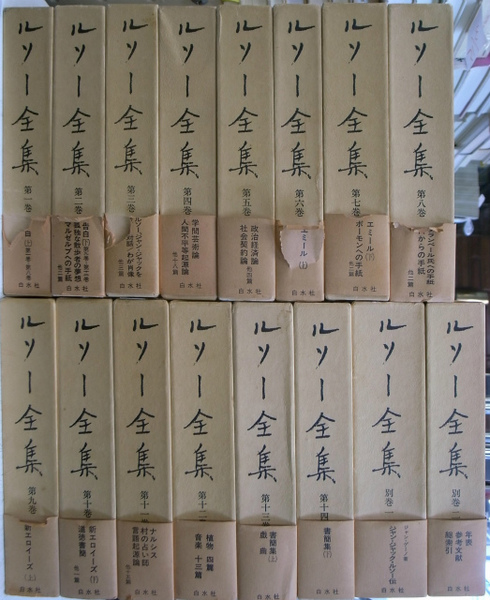 ルソー全集
第一巻
告白(上)
白水社
ルソー全集
第二巻
告白(下)
孤独な散歩者の夢想
マルゼルブへの手紙
白水社
ルソー全集
第三巻
ルソー、ジャン=ジャックを
わが肖像
白水社
ルソー全集
第四巻
学問芸術論
人間不平等起源論
他十八篇
白水社
ルソー全集
第五巻
政治経済論
社会契約論
白水社
ルソー全集
第六巻
エミール(上)
白水社
ルソー全集
第七巻
エミール(下)
ボーモンへの手紙
他二篇
白水社
ルソー全集
第八巻
ランベール氏への手紙
からの手紙
他二篇
白水社
ルソー全集
第九巻
新エロイーズ(上)
ルソー全集
第十巻
新エロイーズ(下)
道徳書簡
他一篇
白水社
ルソー全集
第十一
ナルシス
村の占い師
言語起源論
白水社
ルソー全集
第十二
植物 四篇
音楽 十三篇
白水社
ルソー全集
第十三
書簡集(上)
戯曲
白水社
ルソー全集
第十四
書簡集(下)
白水社
ルソー全集
別巻一
ジャン=ジャック・ルソー伝
白水社
ルソー全集
別巻二
年表
参考文献
総索引
白水社